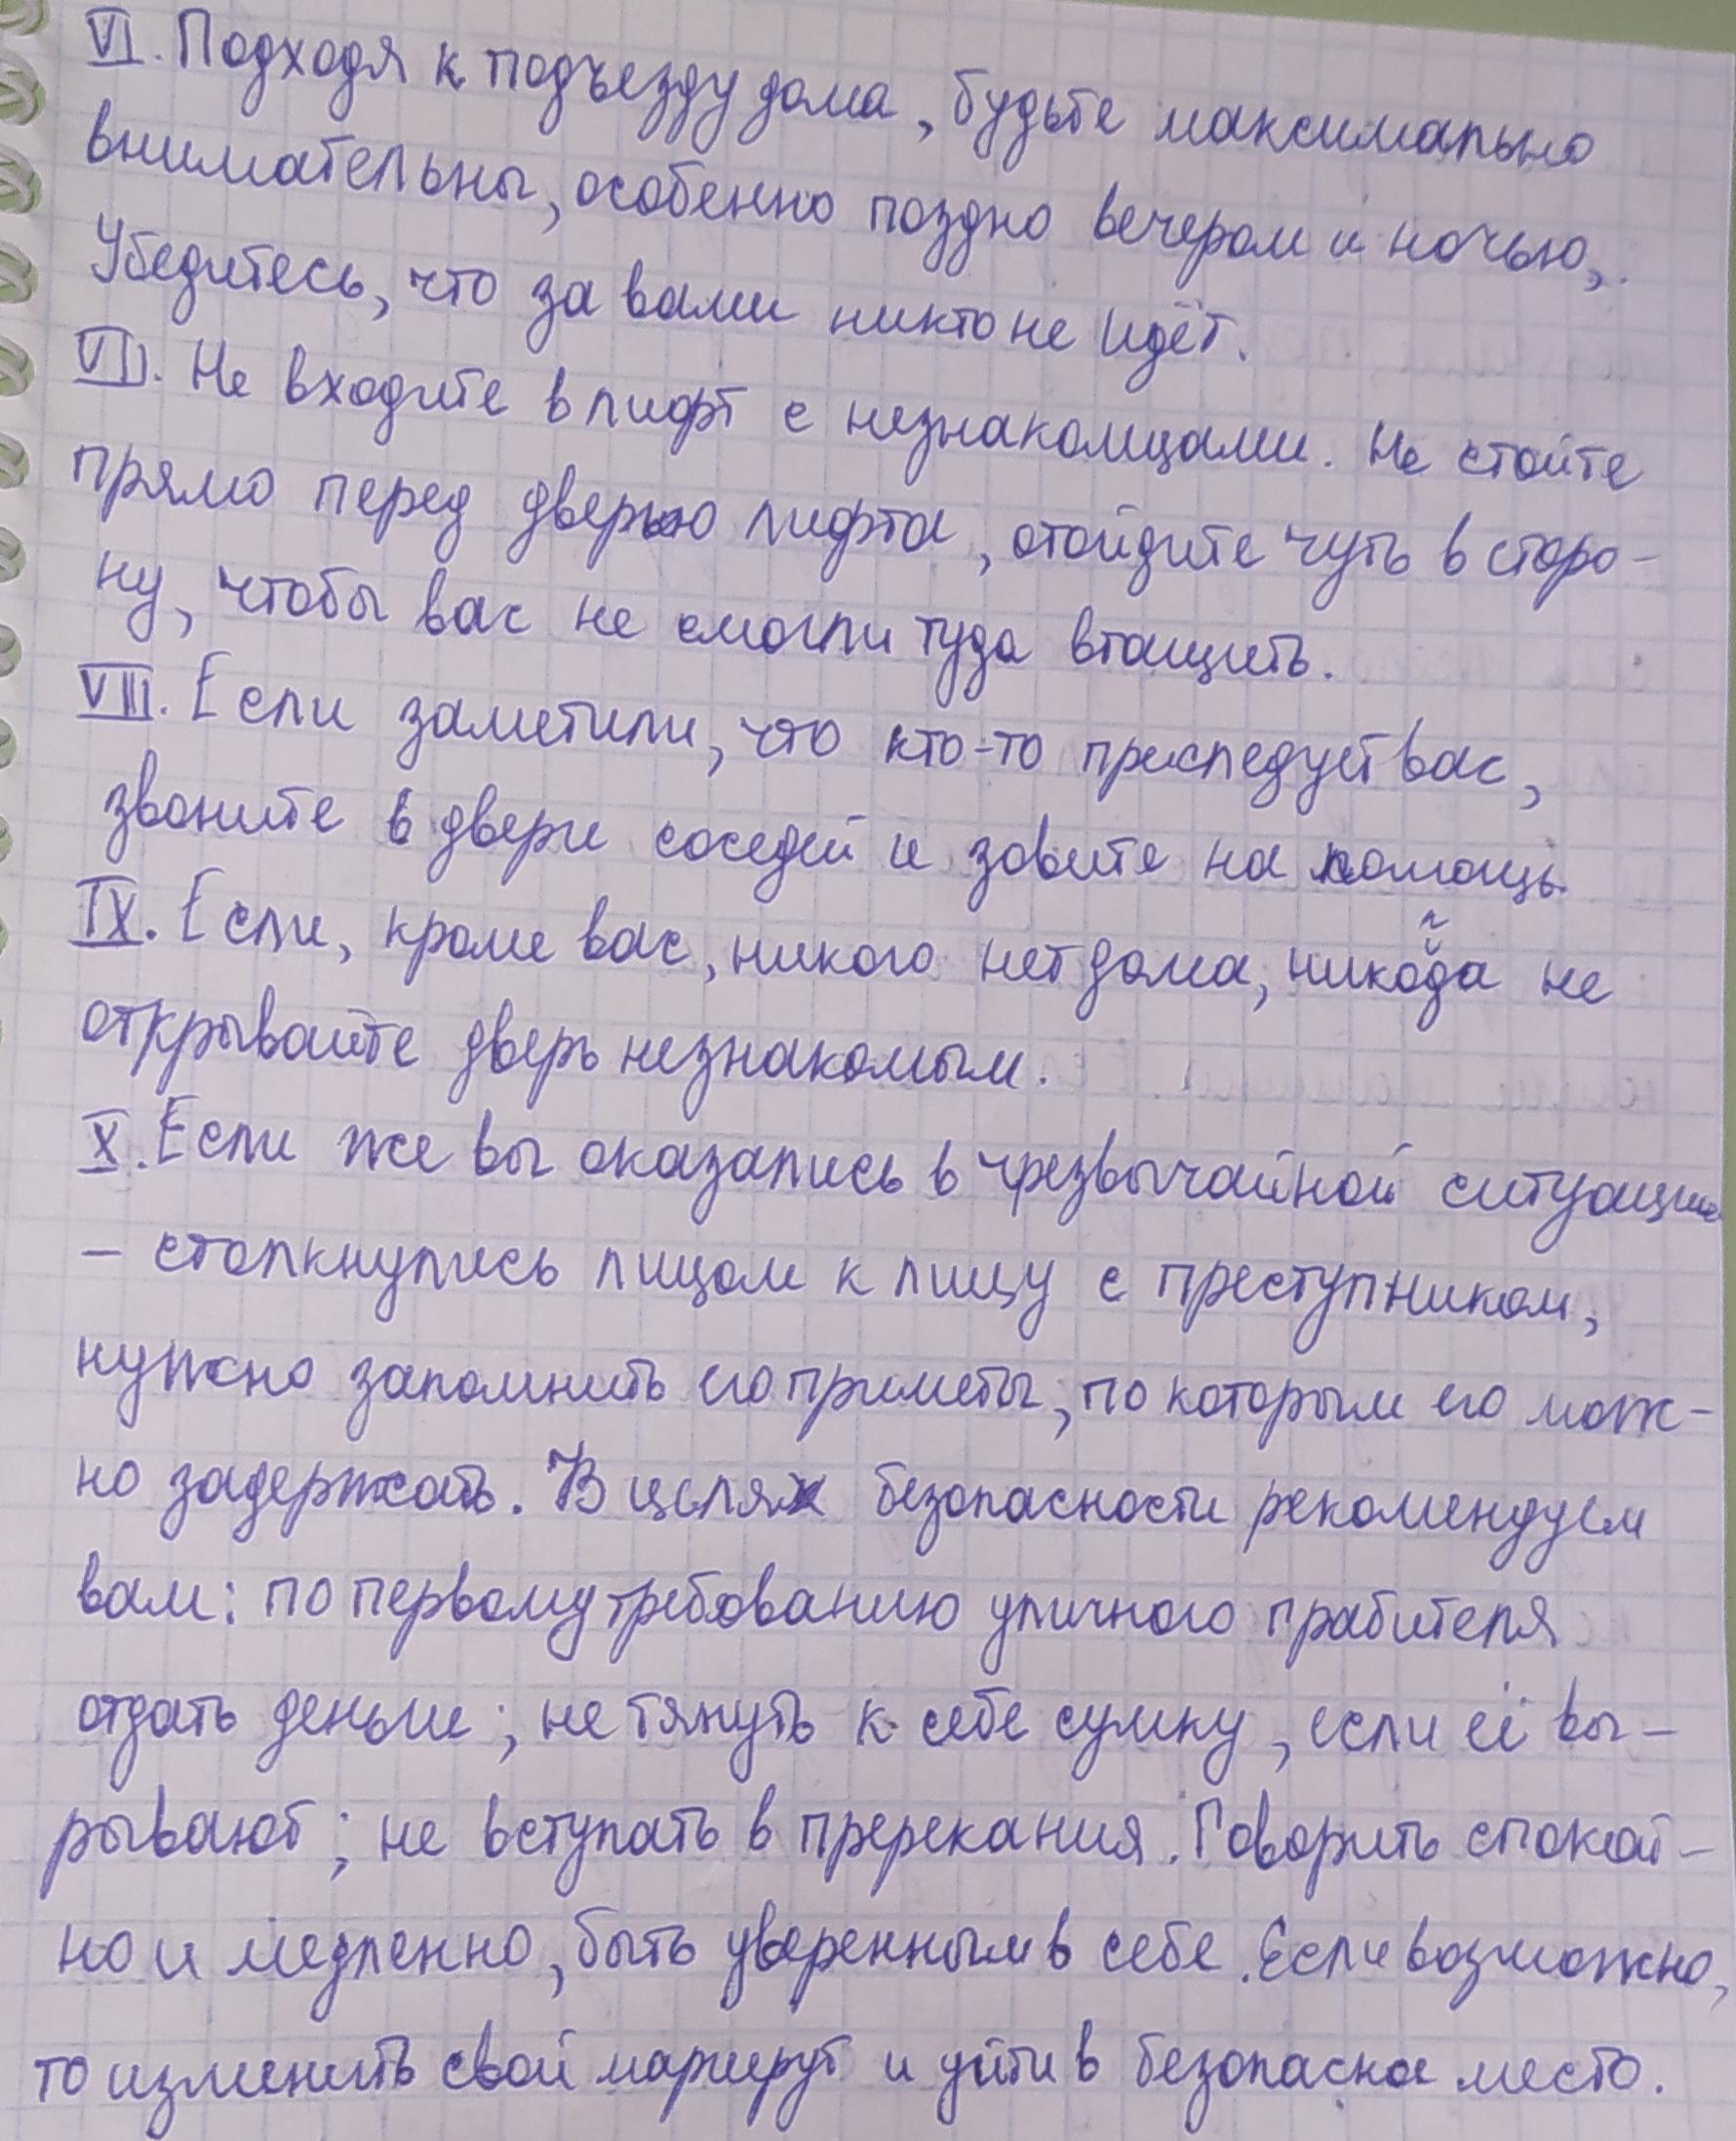 VI. Подходя к подъезду дома, будьте максимально
внимательны, особенно поздно вечером и ночью,.
Убедитесь, что за вами никто не идёт.
VII. Не входите в лифт с незнакомцами. Не стойте
прямо перед дверью лифта, отойдите чуть в сторо-
ну, чтобы вас не смогли туда втащить.
VIII. Если заметили, что кто-то преследует вас,
звоните в двери соседей и зовите на помощь.
IX. Если, кроме вас, никого нет дома, никогда не
открывайте дверь незнакомым.
X. Если же вы оказались в чрезвычайной ситуации
– столкнулись лицом к лицу с преступником,
нужно запомнить его приметы, по которым его мож-
но задержать. В целях безопасности рекомендуем
вам: по первому требованию уличного грабителя
отдать деньги; не тянуть к себе сумку, если её вы-
рывают; не вступать в пререкания. Говорить спокой-
но и медленно, быть уверенным в себе. Если возможно,
то изменить свой маршрут и уйти в безопасное место.